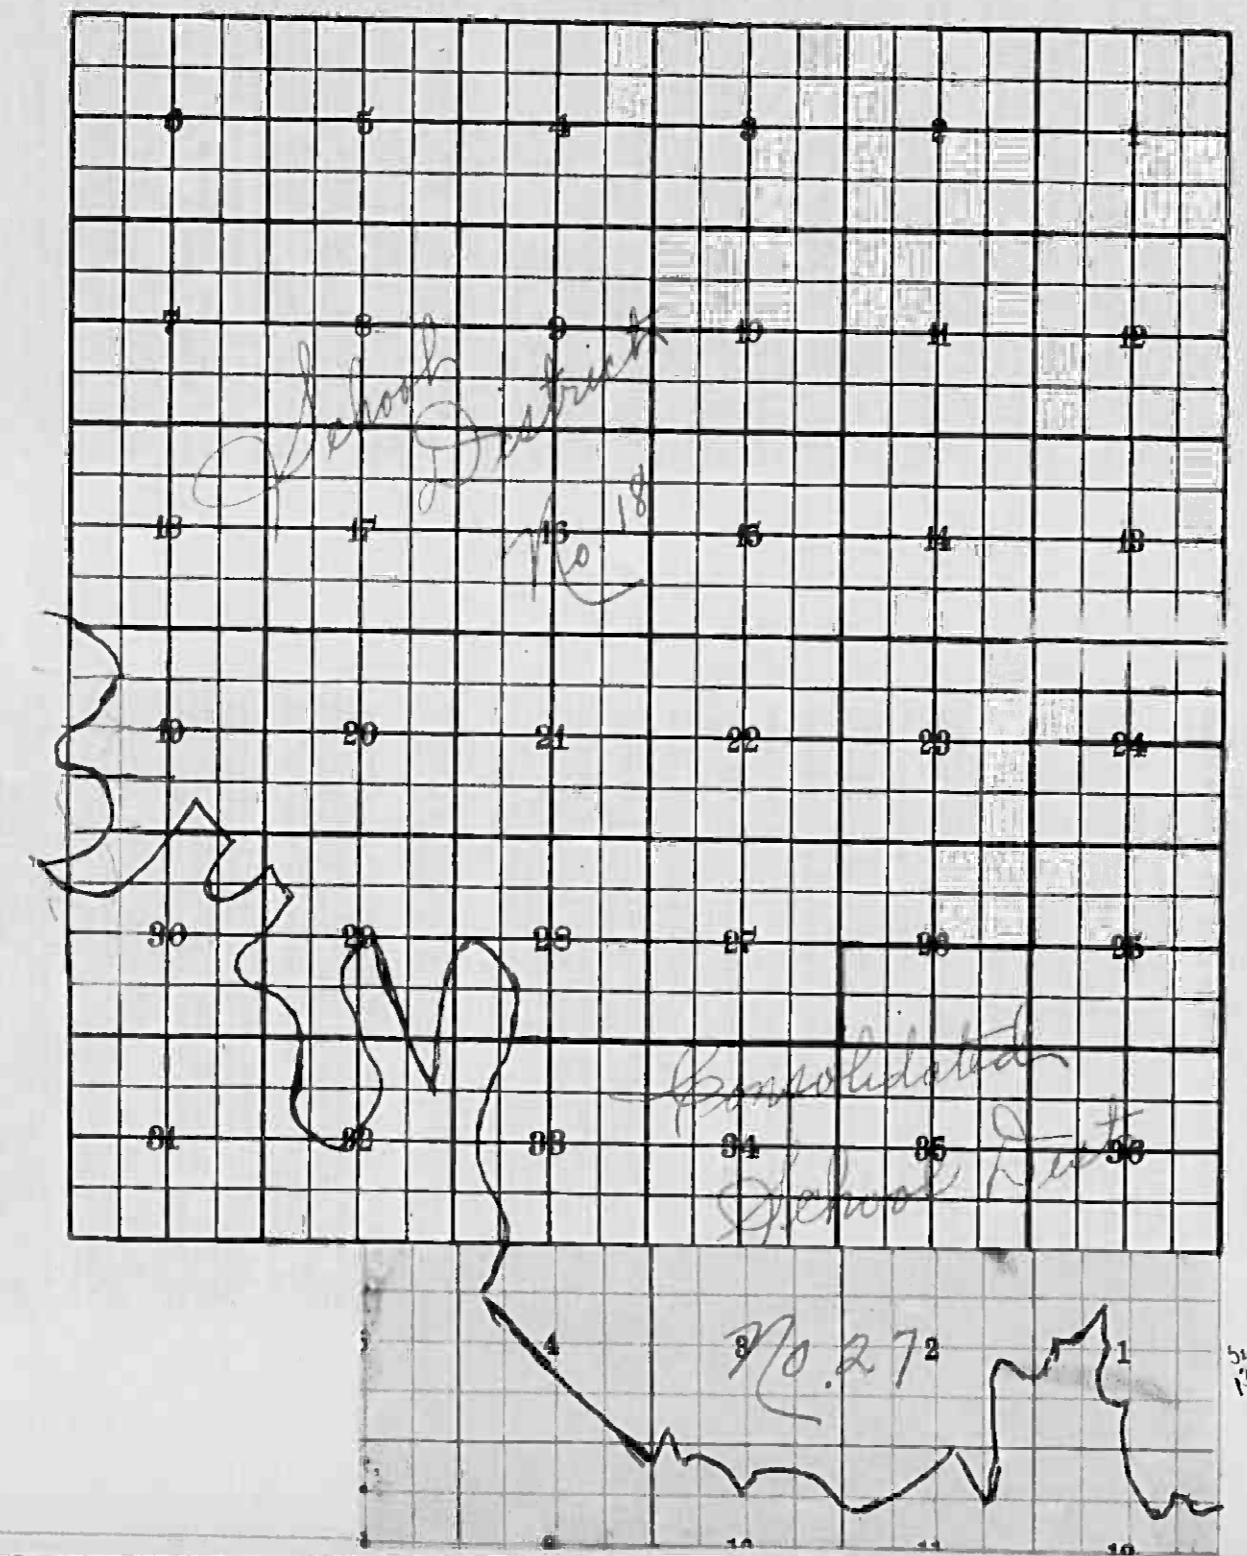 6 5 4 3 2 1
7 8 9 10 11 12
School
District
No 18
18 17 16 15 14 13
19 20 21 22 23 24
30 29 28 27 26 25
Consolidated
31 32 33 34 35 36
School Dist
4 3 2 1
No. 27
9 10 11 12